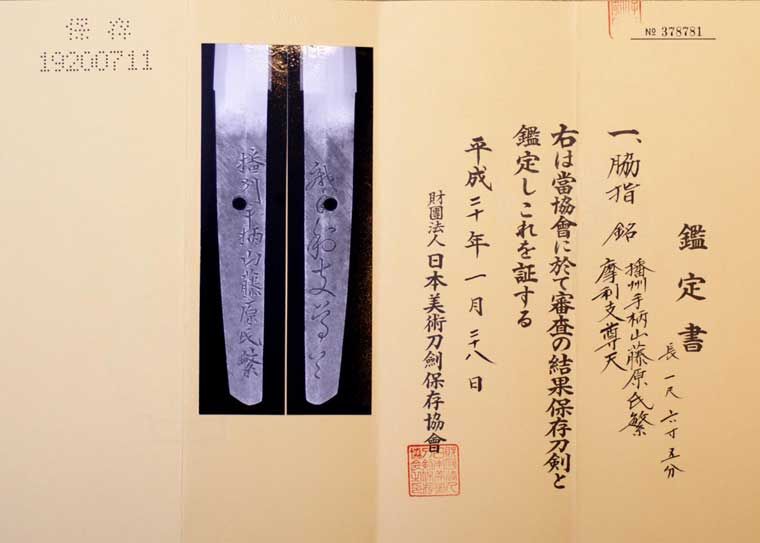 № 378781
鑑定書
長 一尺六寸五分
一、脇指 銘 播州手柄山藤原氏繁
摩利支尊天
右は當協會に於て審査の結果保存刀剣と
鑑定しこれを証する
平成二十年一月二十八日
財團法人日本美術刀劍保存協會
播州手柄山藤原氏繁
保存
19200711